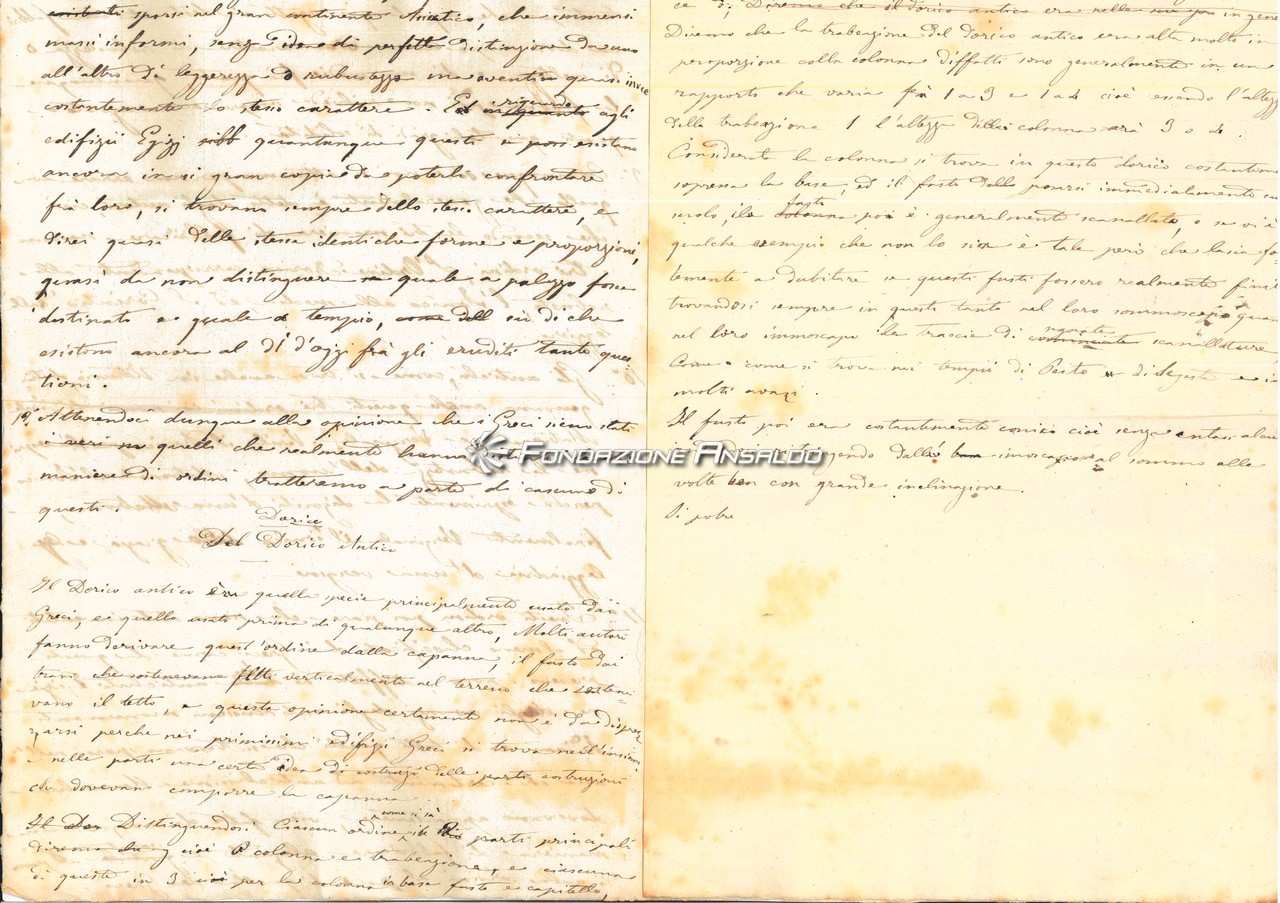 sparsi nel gran continente Asiatico, che immensi
massi informi, senza idea di perfetta distinzione da uno
all'altro di leggerezza o robustezza ma aventi quasi invece
costantemente lo stesso carattere. Ed riguardo agli
edifizii Egizj quantunque questi esistano
ancora in si gran copia da poterli confrontare
frà loro, si trovano sempre dello stesso carattere, e
direi quasi delle stesse identiche forme e proporzioni,
quasi da non distinguere quale a palazzo fosse
destinato e quale a tempio, su di che
esistono ancora al dì d'oggi frà gli eruditi tante ques-
tioni.
Attenendoci dunque alla opinione che i Greci sieno stati
i veri quelli che realmente hanno
maniere di ordini tratteremo a parte di ciascuno di
questi.
Dorico
Del Dorico Antico
Il Dorico antico era quella specie principalmente usato dai
Greci, e quello usato prima di qualunque altro, Molti autori
fanno derivare quest'ordine dalla capanna, il fusto dai
travi che sostenevano fitti verticalmente nel terreno che soste-
vano il tetto, e questa opinione certamente non è da disprez
zarsi perche nei primissimi edifizi Greci si trova nell'insieme
e nelle parti una certa idea di delle parti costruzioni
che dovevano comporre la capanna
Il Dor Distinguendosi ciascun ordine come si sà in parti principali
diremo cioè colonna e trabeazione, e ciascuna
di queste in 3 cioè per la colonna in base fusto e capitello,
ce Diremo che il dorico antico era nelle in gene
Diremo che la trabeazione del dorico antico era alta molto in
proporzione colla colonna diffatti sono generalmente in un
rapporto che varia frà 1 a 3 e 1 a 4 cioè essendo l'altezz
della trabeazione 1 l'altezza della colonna sarà 3 o 4.
Considerata la colonna si trova in questo dorico costanteme
soppressa la base, ed il fusto dello posarsi immediatamente su
suolo, il fusto colonna poi è generalmente scanallato, o se vi è
qualche esempio che non lo sia è tale però che lascia fo
temente a dubitare se questi fusti fossero realmente finit
trovandosi sempre in questi tanto nel loro sommoscapo quan
nel loro immoscapo le traccie di scanallature
Come come si trova nei tempii di Pesto e di Segesta e i
molti avanzi.
Il fusto poi era costantemente conico cioè senza entasi alcu
dall' imoscapo al sommo alle
volte ben con grande inclinazione.
Si potre
Fondazione Ansaldo